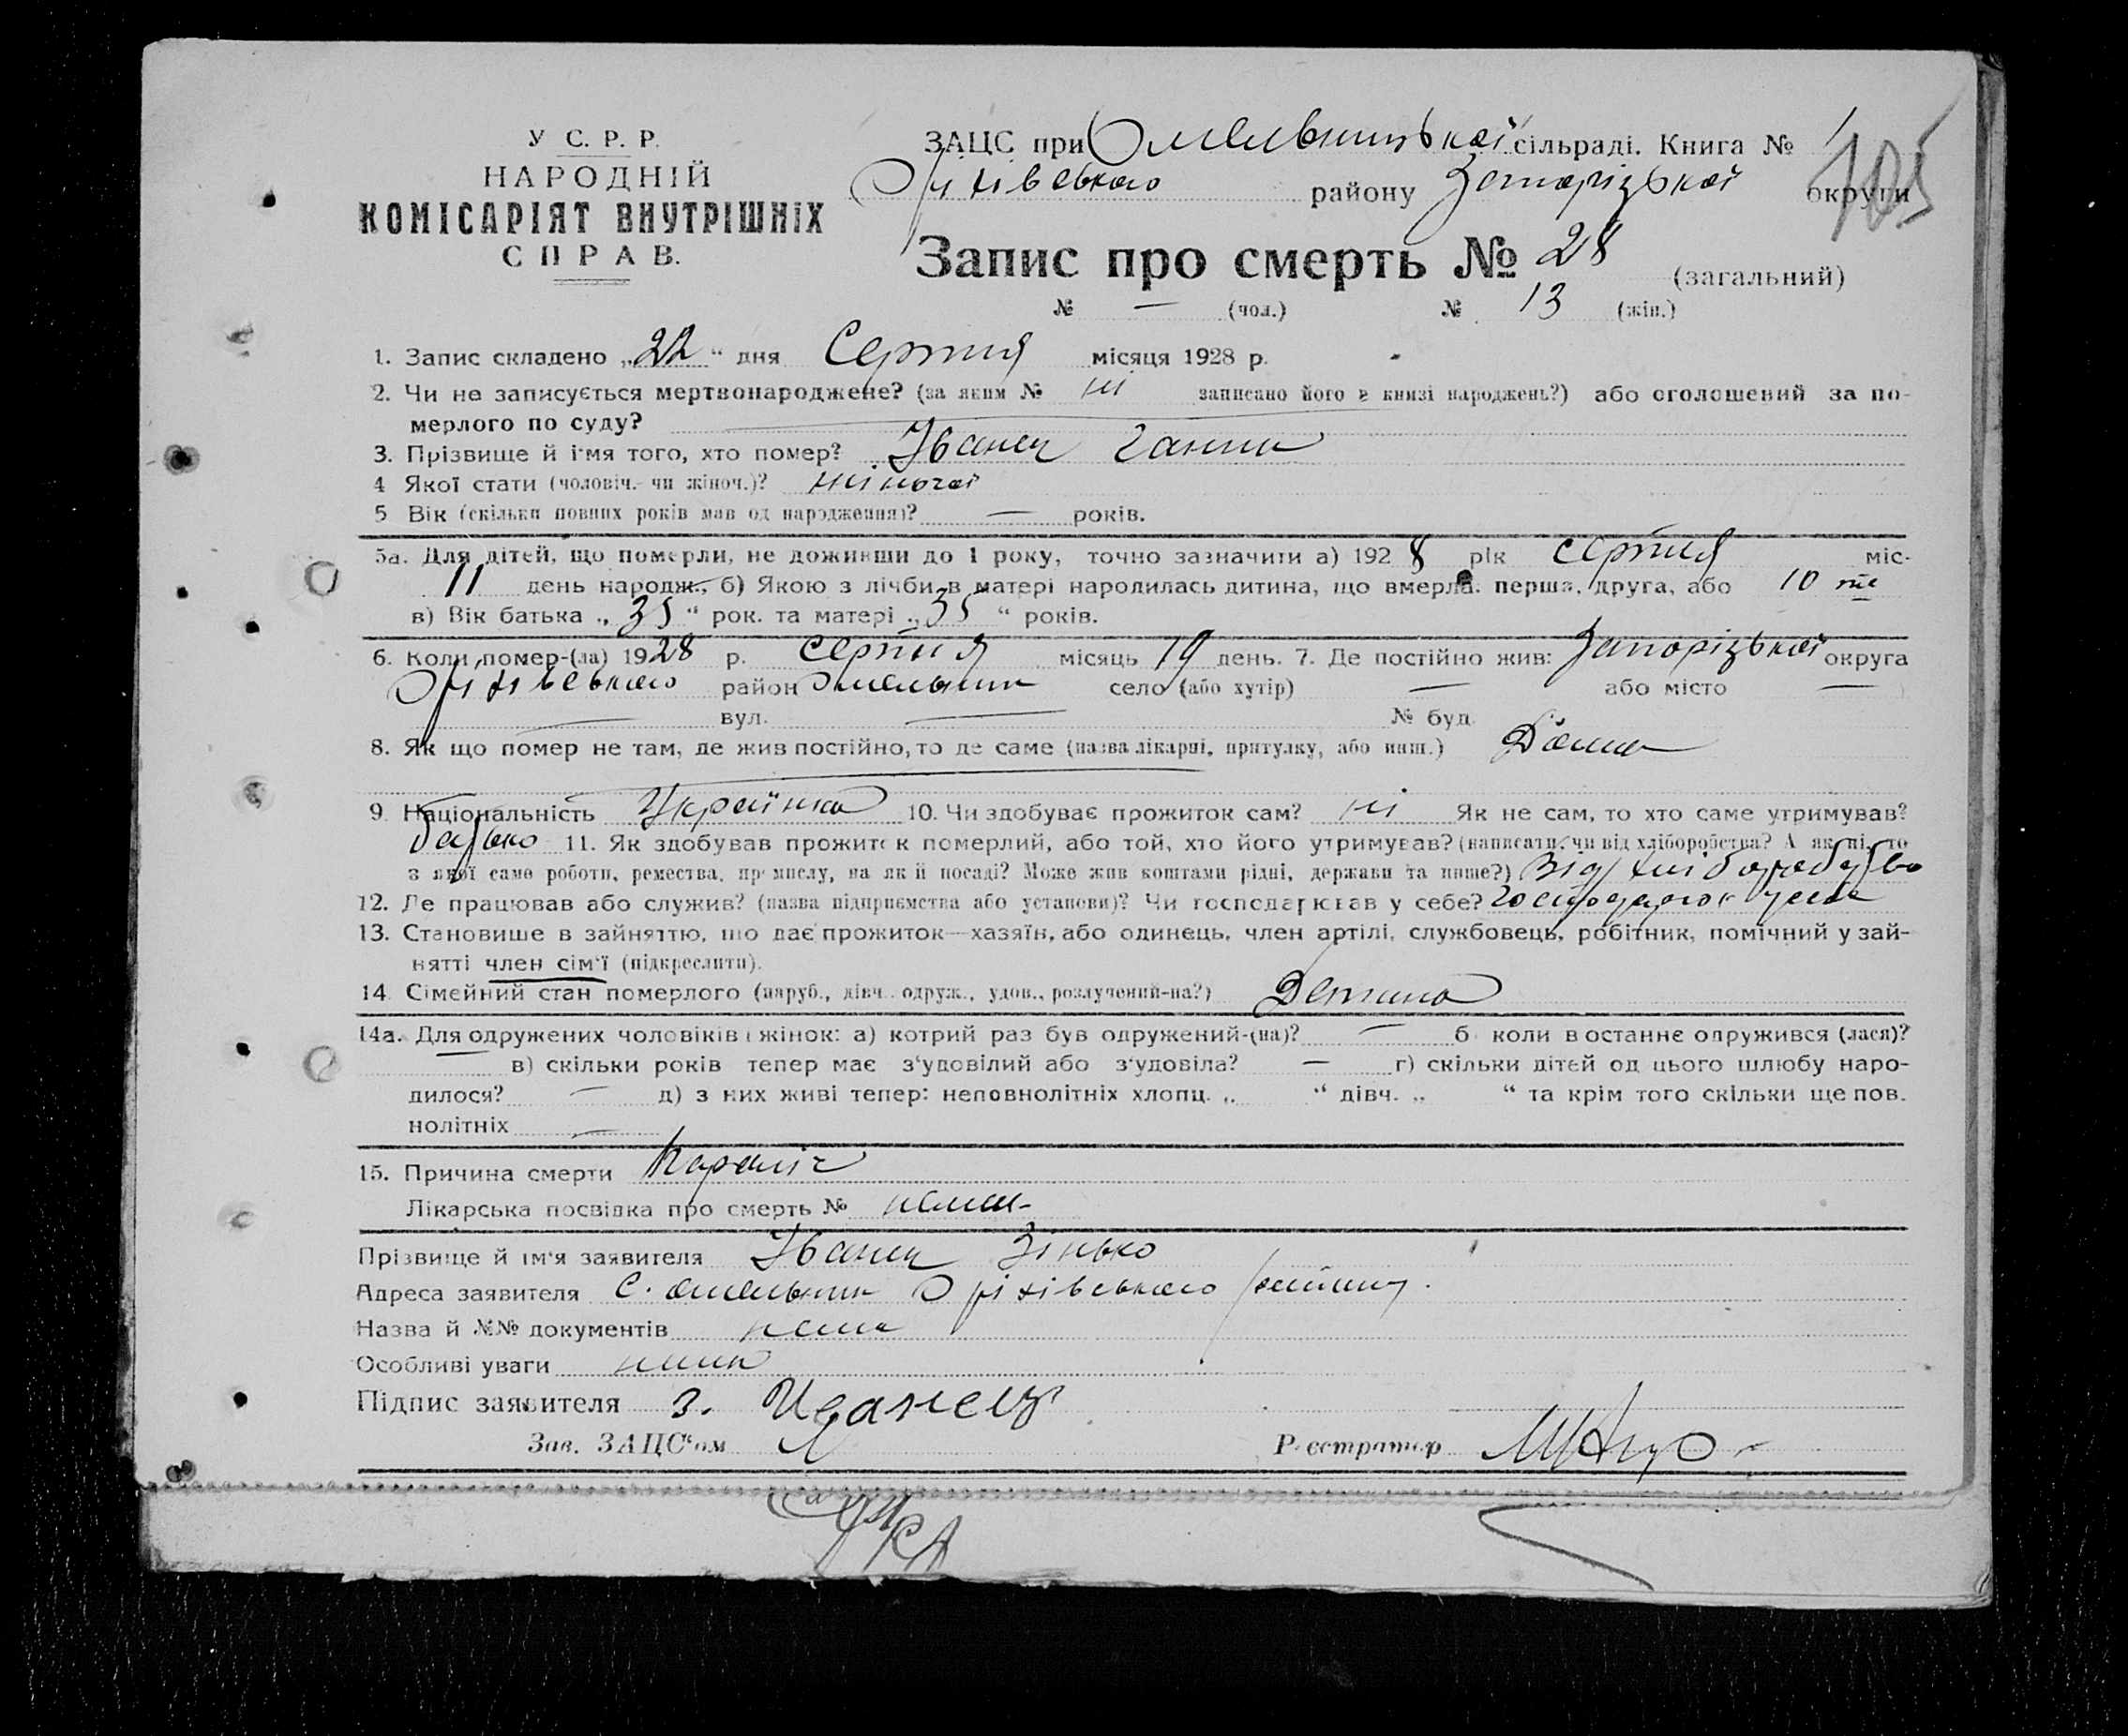 У С. Р. Р.
НАРОДНІЙ
КОМІСАРІЯТ ВНУТРІШНІХ
СПРАВ.
ЗАЦС при Омельницької сільраді. Книга № 1
105
Оріхівського району Запорізької округи
Запис про смерть № 28 (загальний)
№ — (чол.) № 13 (жін.)
1. Запис складено „22“ дня Серпня місяця 1928 р.
2. Чи не записується мертвонароджене? (за яким № ні записано його в книзі народжень?) або оголошений за по-
мерлого по суду? —
3. Прізвище й ім'я того, хто помер? Іванец Ганна
4 Якої стати (чоловіч.- чи жіноч.)? жіночої
5 Вік (скільки повних років мав од народження)? — років.
5а. Для дітей, що померли, не доживши до 1 року, точно зазначити а) 1928 рік серпня міс-
11 день народж., б) Якою з лічби в матері народилась дитина, що вмерла. перша, друга, або 10 те
в) Вік батька „35“ рок. та матері „35“ років.
6. Коли помер-(ла) 1928 р. серпня місяць 19 день. 7. Де постійно жив: Запорізької округа
Оріхівського район Омельник село (або хутір) — або місто —
— вул. — № буд.
8. Як що помер не там, де жив постійно, то де саме (назва лікарні, притулку, або инш.) Дома
9 Національність Українка 10. Чи здобуває прожиток сам? ні Як не сам, то хто саме утримував?
батько 11. Як здобував прожиток померлий, або той, хто його утримував? (написати, чи від хліборобства? А як ні, то
з якої саме роботи, ремества, промислу, на якій посаді? Може жив коштами рідні, держави та инше?) Від хліборобства
12. Де працював або служив? (назва підприємства або установи)? Чи господарював у себе? господарює у себе
13. Становище в зайняттю, що дає прожиток—хазяїн, або одинець, член артілі, службовець, робітник, помічний у зай-
нятті член сім'ї (підкреслити).
14 Сімейний стан померлого (паруб., дівч. одруж., удов., розлучений-на?) Детина
14а. Для одружених чоловіків і жінок: а) котрий раз був одружений-(на)? — б коли в останнє одружився (лася)?
— в) скільки років тепер має з'удовілий або з'удовіла? — г) скільки дітей од цього шлюбу наро-
дилося? — д) з них живі тепер: неповнолітніх хлопц. „ “ дівч. „ “ та крім того скільки ще пов.
нолітніх —
15. Причина смерти Параліч
Лікарська посвідка про смерть № нема
Прізвище й ім'я заявителя Іванец Зінько
Адреса заявителя С. Омельник Оріхівського району.
Назва й №№ документів нема
Особливі уваги нема
Підпис заявителя З. Иванец
Зав. ЗАЦС'ом Реєстратор